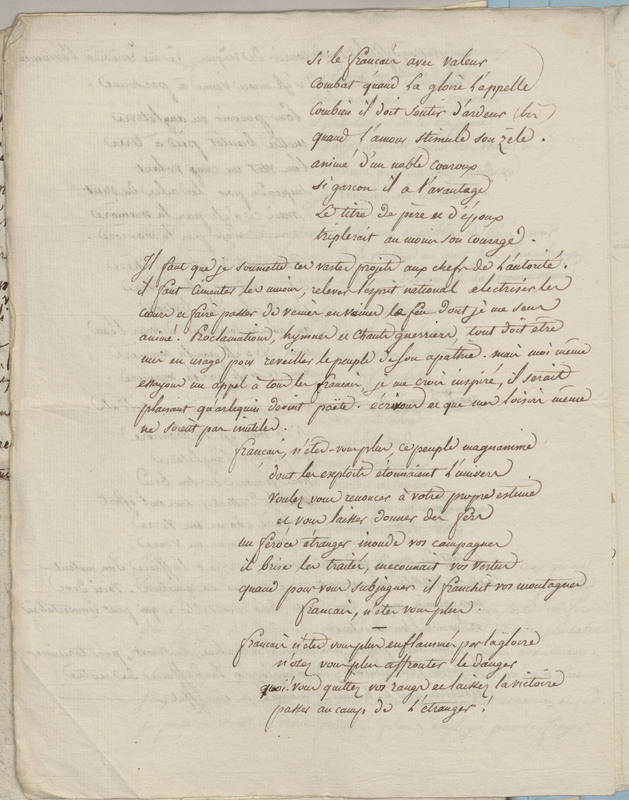 si le français avec valeur
Combat quand la gloire l'appelle
Combien il doit sentir d'ardeur (bis)
quand l'amour stimule son zele.
animé d'un noble couroux
si garçon il a l'avantage
Le titre de père et d'époux
triplerait au moins son courage.
Il faut que je soumette ces vastes projets aux chefs de l'autorité.
il faut cimenter les unions, relever l'esprit national electriser les
coeurs et faire passer de veines en veines le feu dont je me sens
animé. Proclamations, hymnes et chants guerriers, tout doit être
mis en usage pour reveiller le peuple de son apathie. mais moi même
essayons un appel à tous les français, je me crois inspiré, il serait
plaisant qu'arlequin devint poëte. écrivons et que mes loisirs même
ne soient pas inutiles.
français, n'êtes-vous plus ce peuple magnanime
dont les exploits étonnaient l'univers
voulez vous renoncer à votre propre estime
et vous laisser donner des fers
un féroce étranger inonde vos campagnes
il brise les traités, meconnait vos vertus
quand pour vous subjuguer il franchit vos montagnes
français, n'êtes vous plus.
français n'êtes vous plus enflammés par la gloire
n'osez vous plus affronter le danger
quoi! vous quittez vos rangs et laissez la victoire
passer au camp de l'étranger!